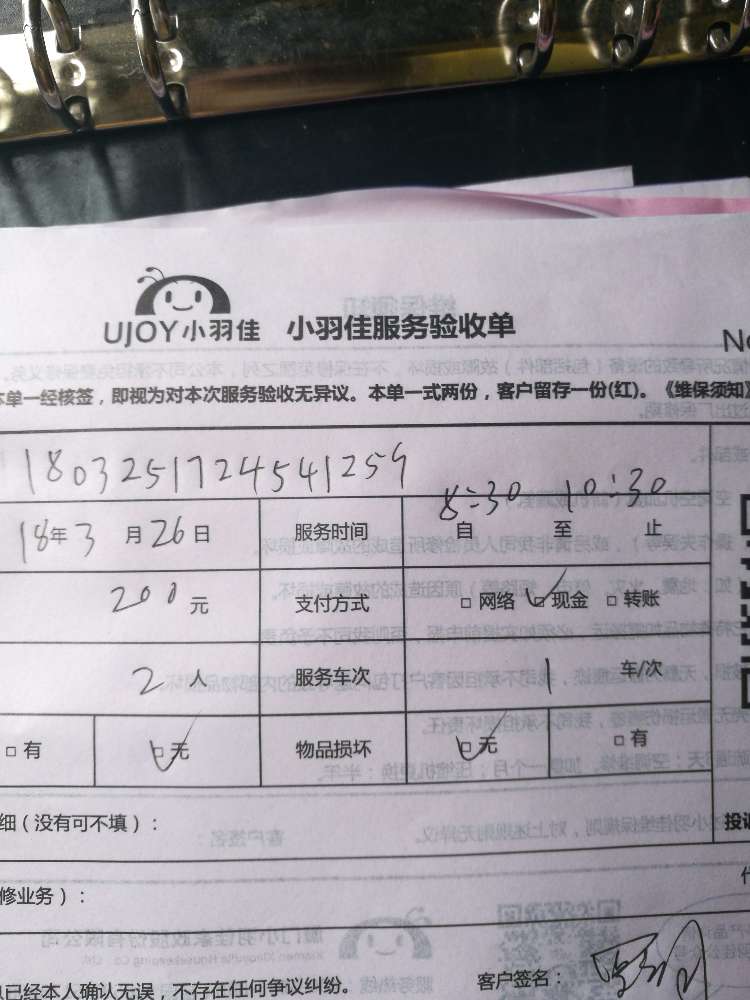 UJOY小羽佳 小羽佳服务验收单
本单一经核签，即视为对本次服务验收无异议。本单一式两份，客户留存一份(红)。《维保须知》
1803251724541259
8:30 10:30
18年3月26日 服务时间 自 至 止
200元 支付方式 □网络 □现金 □转账
2人 服务车次 1 车/次
□有 □无 物品损坏 □无 □有
细（没有可不填）： 投诉
修业务）：
已经本人确认无误，不存在任何争议纠纷。 客户签名：